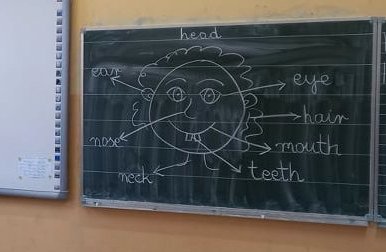 head
ear
eye
hair
nose
mouth
neck
teeth